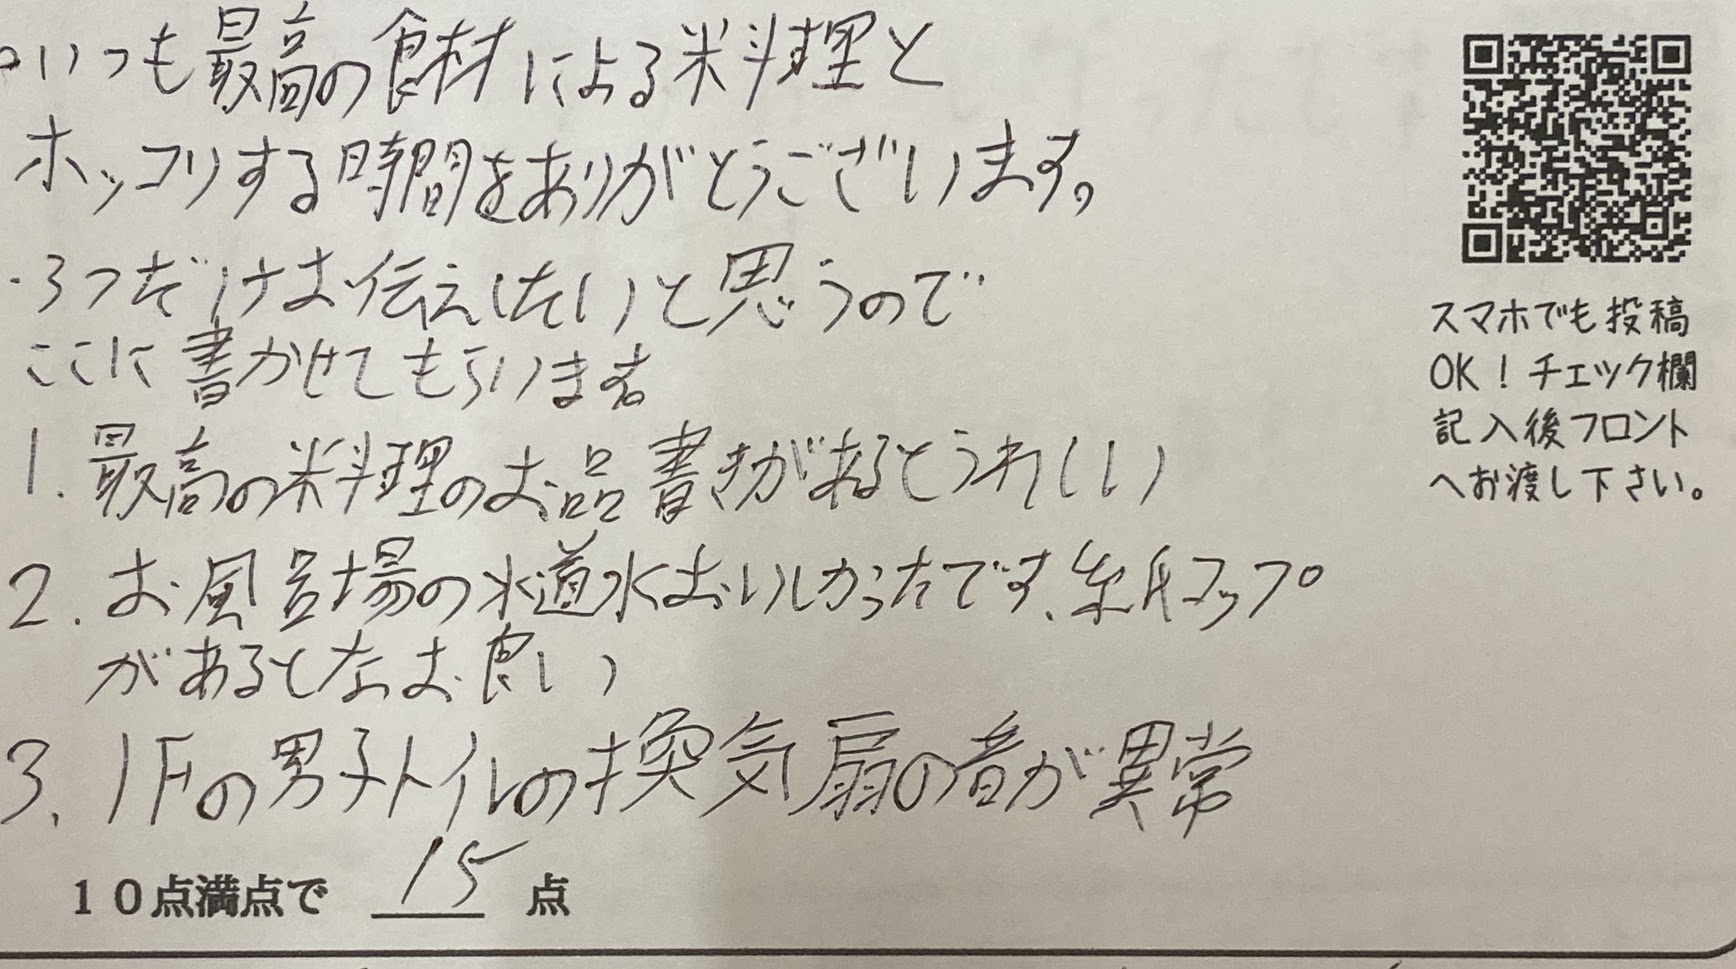 ・いつも最高の食材による料理と
ホッコリする時間をありがとうございます。
・3つだけお伝えしたいと思うので
ここに書かせてもらいます。
1. 最高の料理のお品書きがあるとうれしい
2. お風呂場の水道水おいしかったです、紙コップ
があるとなお良い
3. 1Fの男子トイレの換気扇の音が異常
10点満点で 15 点
スマホでも投稿
OK！チェック欄
記入後フロント
へお渡し下さい。